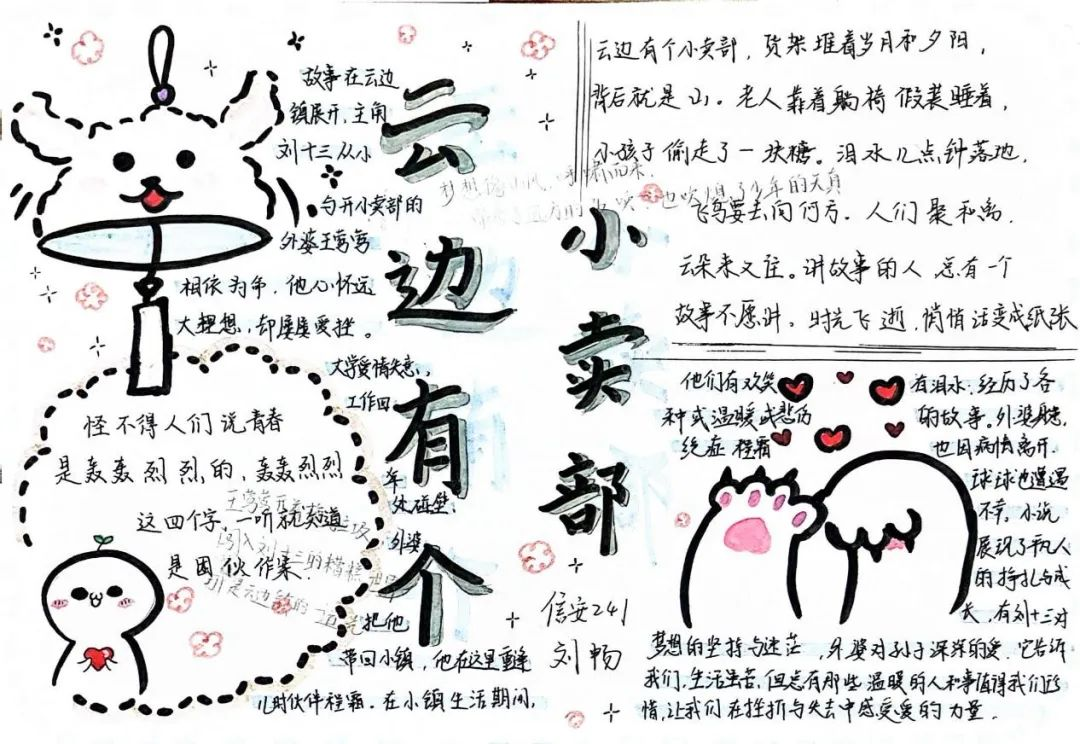 云边有个
小卖部
故事在云边
镇展开，主角
刘十三从小
与开小卖部的
外婆王莺莺
相依为命，他心怀远
大理想，却屡屡受挫。
大学爱情失意，
工作四
处碰壁，
外婆
把他
带回小镇，他在这里重逢
儿时伙伴程霜。在小镇生活期间，
怪不得人们说青春
是轰轰烈烈的，轰轰烈烈
这四个字，一听就知道
是团伙作案.
云边有个小卖部，货架堆着岁月和夕阳，
背后就是山。老人靠着躺椅假装睡着，
小孩子偷走了一块糖。泪水几点钟落地，
飞鸟要去向何方。人们聚和离.
云朵来又往。讲故事的人总有一个
故事不愿讲。时光飞逝，悄悄话变成纸张
他们有欢笑
有泪水，经历了各
种或温暖或悲伤
的故事。外婆
绝症 程霜
也因病情离开.
球球也遭遇
不幸。小说
展现了平凡人
的挣扎与成
长，有刘十三对
梦想的坚持与迷茫，外婆对孙子深深的爱.它告诉
我们，生活虽苦，但总有那些温暖的人和事值得我们
情，让我们在挫折与失去中感受爱的力量.
信安241
刘畅